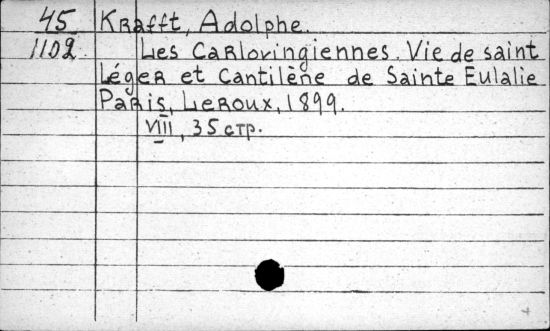 45 Krafft, Adolphe.
1102 Les Carlovingiennes. Vie de saint
Léger et Cantilène de Sainte Eulalie
Paris, Leroux, 1899.
VIII, 35 стр.